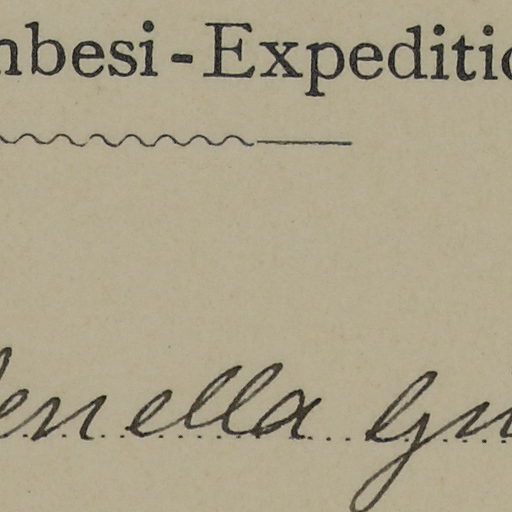 mbesi-Expeditio
enella gu